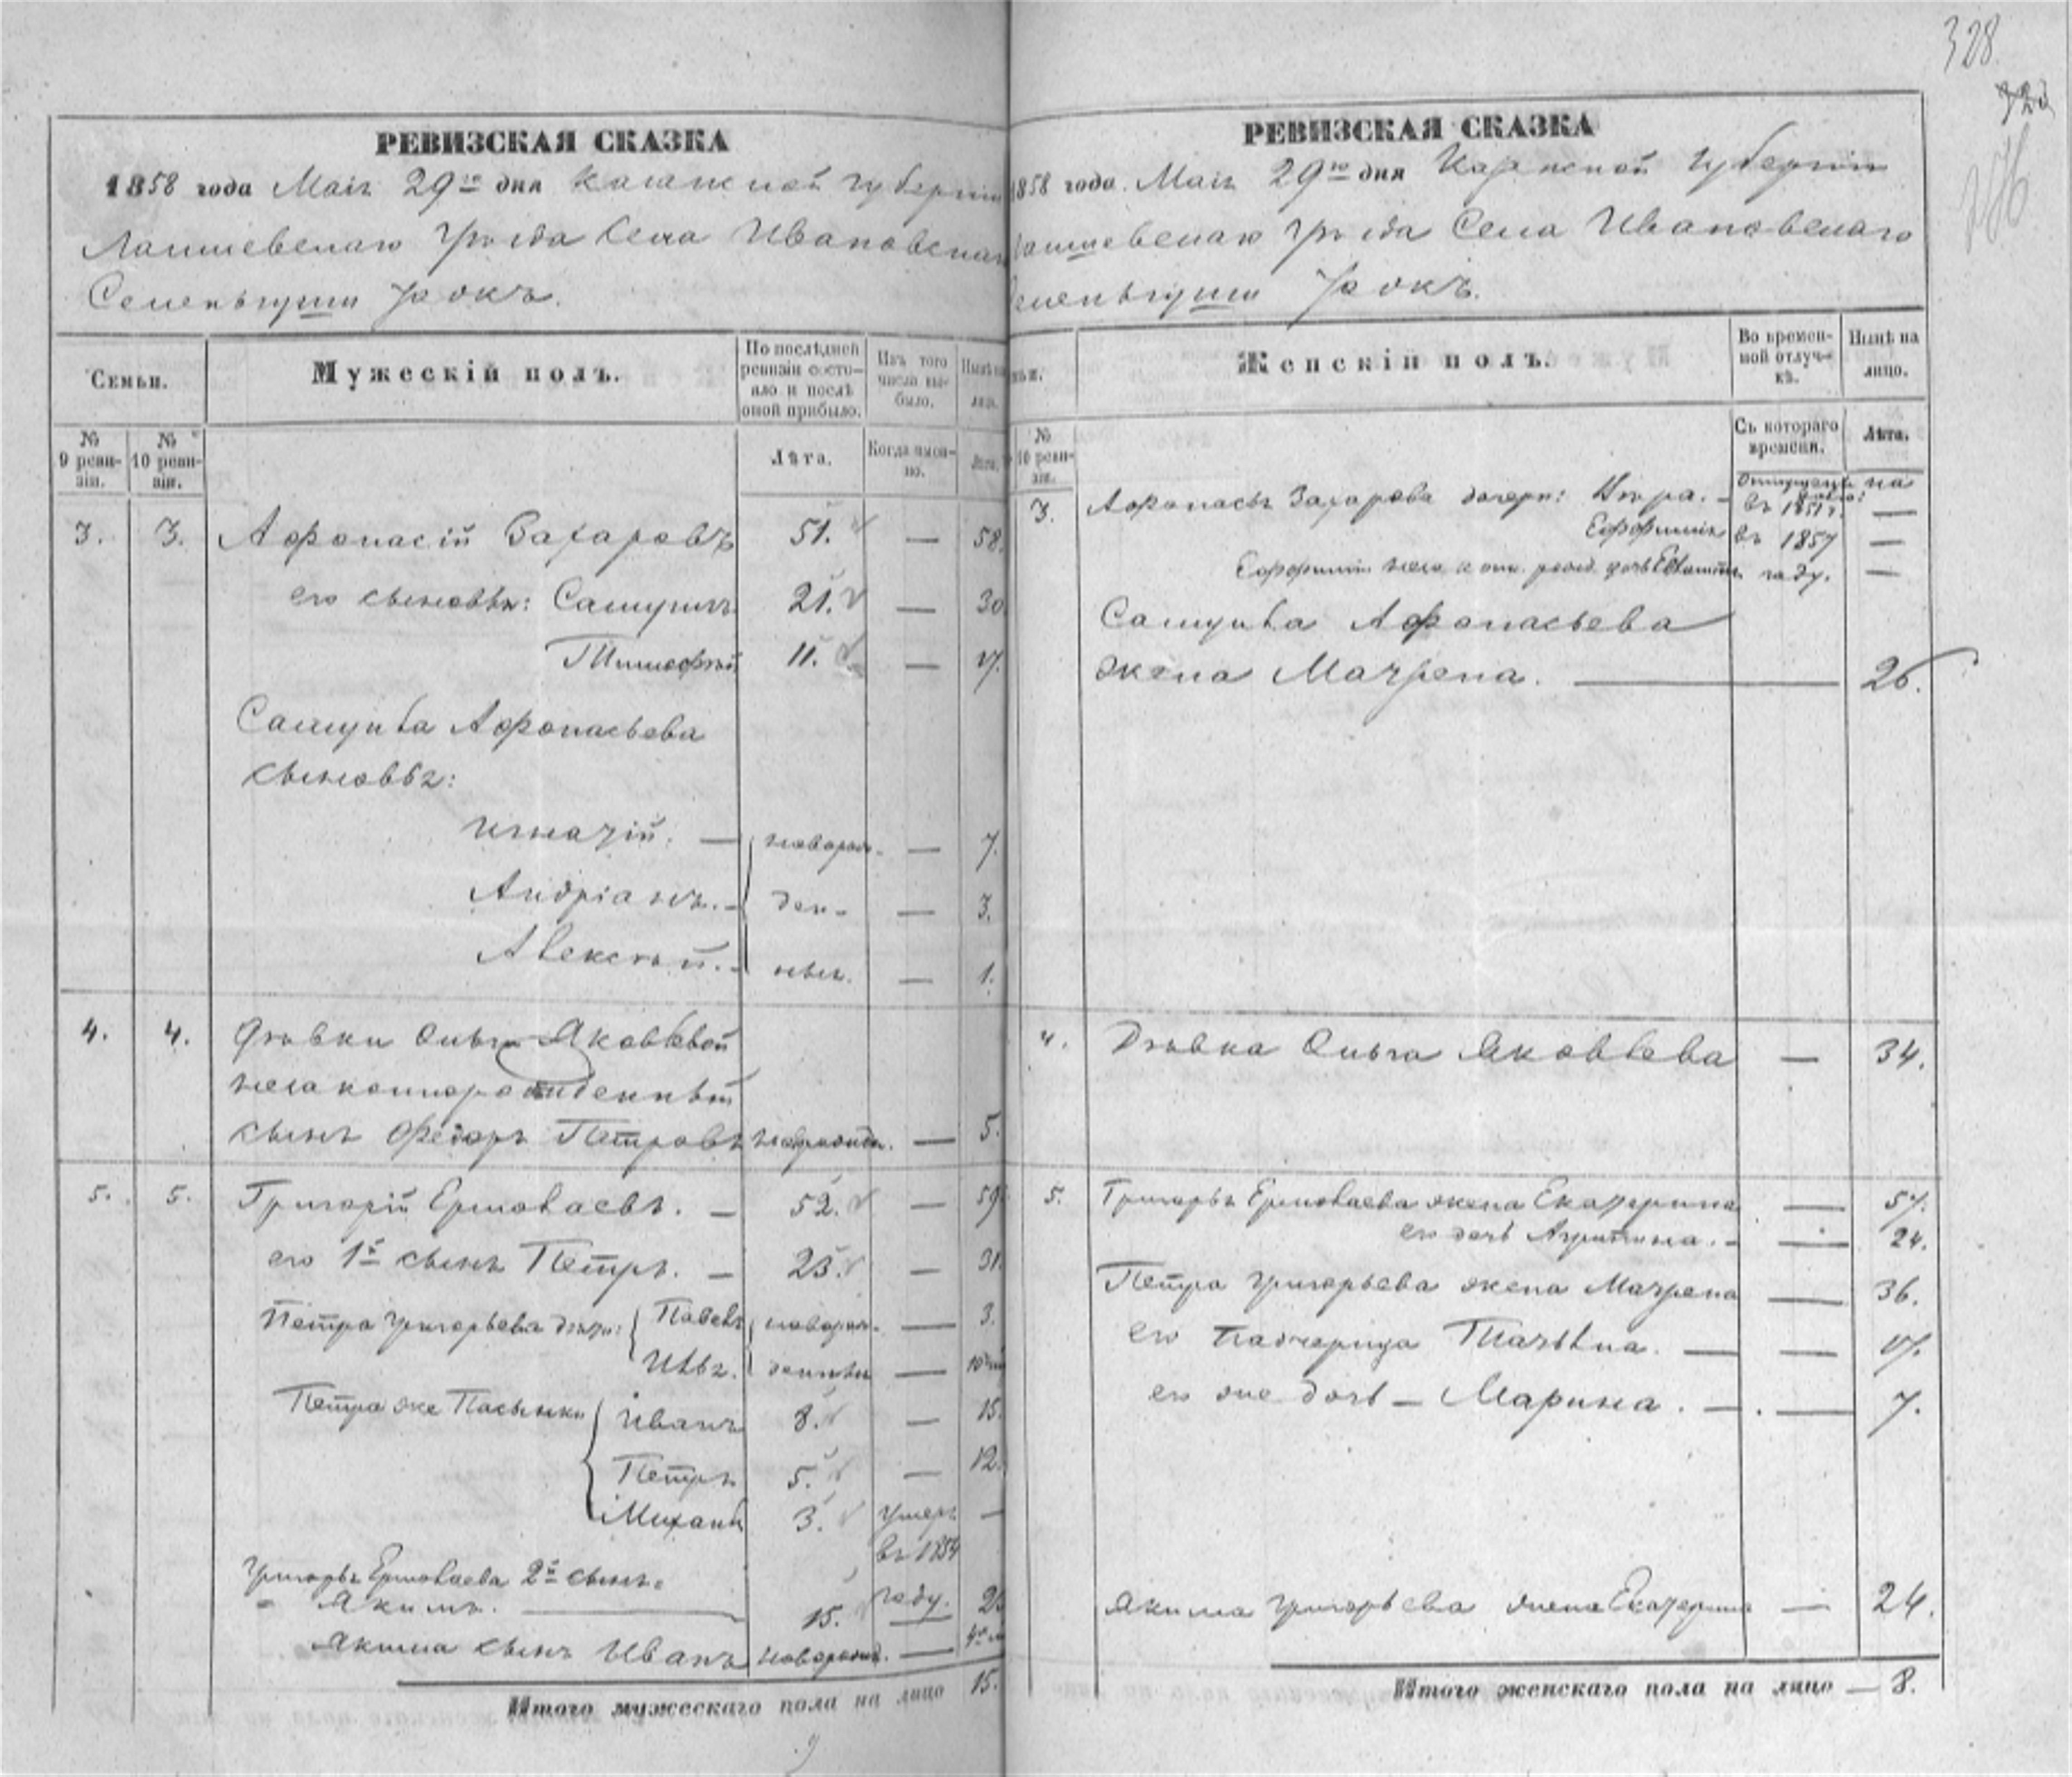 328
РЕВИЗСКАЯ СКАЗКА
1858 года Маія 29го дня Казанской губерніи
Лаишевскаго Уѣзда Села Ивановскаго
тожъ.
Семьи.
Мужескій полъ.
По послѣдней ревизіи состояло и послѣ оной прибыло.
Изъ того числа выбыло.
Нынѣ на лицо.
№ 9 ревизіи.
№ 10 ревизіи.
Лѣта.
Когда именно.
Лѣта.
3. 3. Афонасій Захаровъ 51. — 58.
его сыновья: Самуилъ 21. — 30
Тимофѣй 11. — 17.
Самуила Афонасьева
сыновья:
Игнатій. — новорож- — 7.
Андріанъ. — ден- — 3.
Алексѣй. — ные. — 1.
4. 4. Дѣвки Ольги Яковлевой
незаконнорожденный
сынъ Федоръ Петровъ новорожден. — 5.
5. 5. Григорій Ермолаевъ. — 52. — 59
его 1й сынъ Петръ. — 23. — 31.
Петра Григорьева дѣти: Павелъ новорож- — 3.
денные —
Петра же Пасынки Иванъ 8. — 15.
Петръ 5. — 12.
Михаилъ 3. умеръ —
въ 1854
Григорья Ермолаева 2й сынъ году.
Якимъ. 15.
Якима сынъ Иванъ новорожд. —
Итого мужескаго пола на лицо 15.
РЕВИЗСКАЯ СКАЗКА
1858 года. Маія 29го дня Казанской Губерніи
Лаишевскаго Уѣзда Села Ивановскаго
тожъ.
Женскій полъ.
Во временной отлучкѣ.
Нынѣ на лицо.
№ 10 ревизіи.
Съ котораго времени.
Лѣта.
3. Афонасья Захарова дочери: — въ 1851 г. —
Ефимія въ 1857 —
году. —
Самуила Афонасьева
жена Матрена. — 26.
4. Дѣвка Ольга Яковлева — 34.
5. Григорья Ермолаева жена Екатерина — 57.
его дочь — 24.
Петра Григорьева жена Матрена — 36.
его падчерица Татьяна. — 17.
его же дочь — Марина. — 7.
Якима Григорьева жена Екатерина — 24.
Итого женскаго пола на лицо — 8.